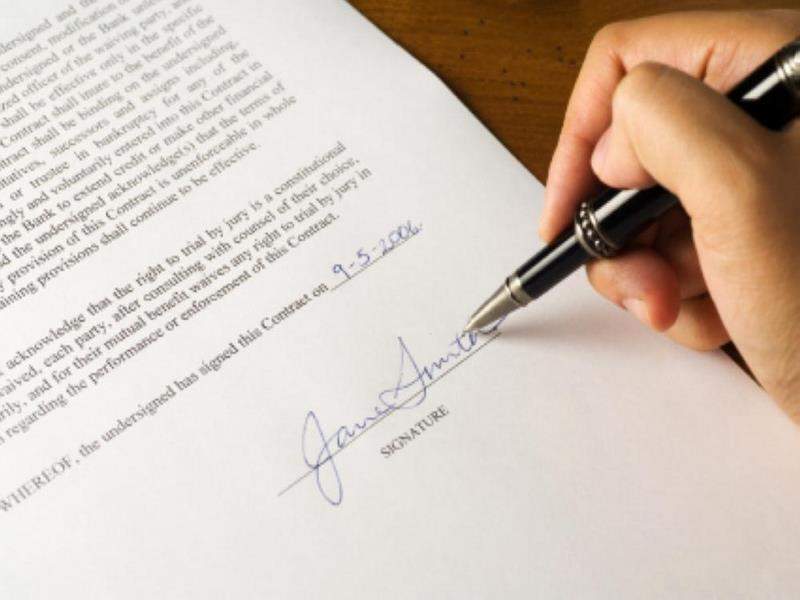 dersigned and the
consent, modification o
ndersigned or the Bank unless
zed officer of the waiving party, and
shall be effective only in the specific
Contract shall inure to the benefit of the
tract shall be binding on the undersigned
tatives, successors and assigns including,
or trustee in bankruptcy for any of the
ngly and voluntarily entered into this Contract in
the Bank to extend credit or make other financial
d the undersigned acknowledge(s) that the terms of
y provision of this Contract is unenforceable in whole
aining provisions shall continue to be effective.
acknowledge that the right to trial by jury is a constitutional
waived, each party, after consulting with counsel of their choice,
rily, and for their mutual benefit waives any right to trial by jury in
n regarding the performance or enforcement of this Contract.
WHEREOF, the undersigned has signed this Contract on 9-5-2006.
Jane Smith
SIGNATURE